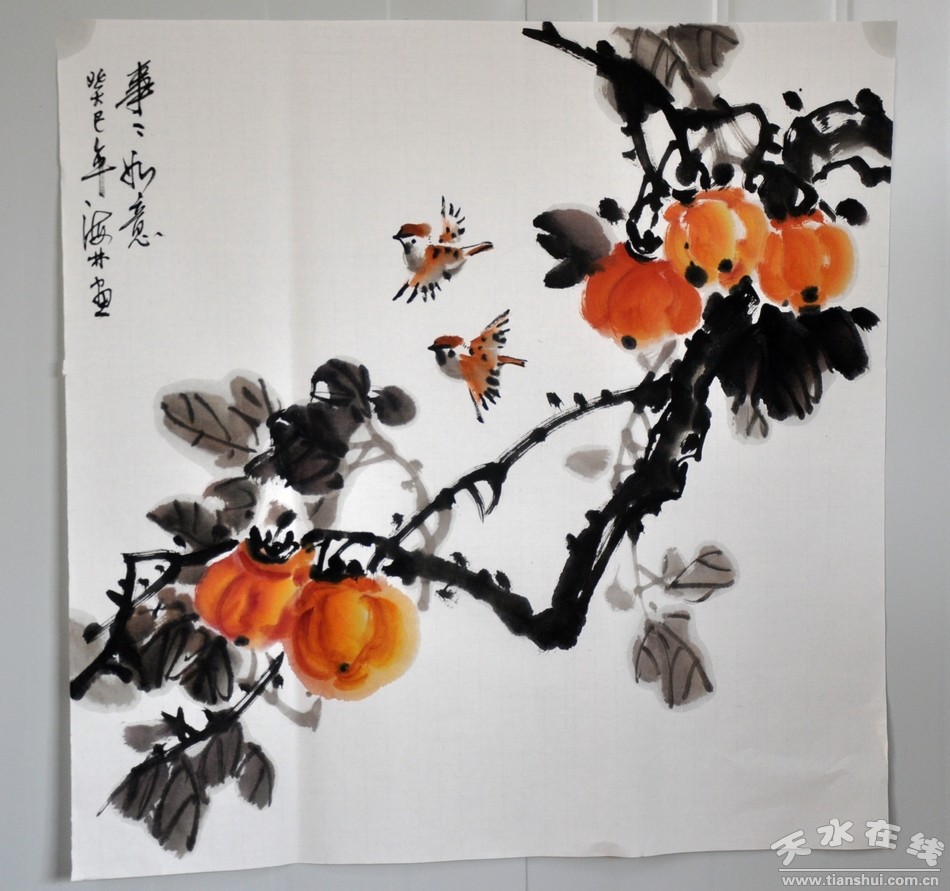 事〻如意
癸巳年海林画
天水在线
www.tianshui.com.cn